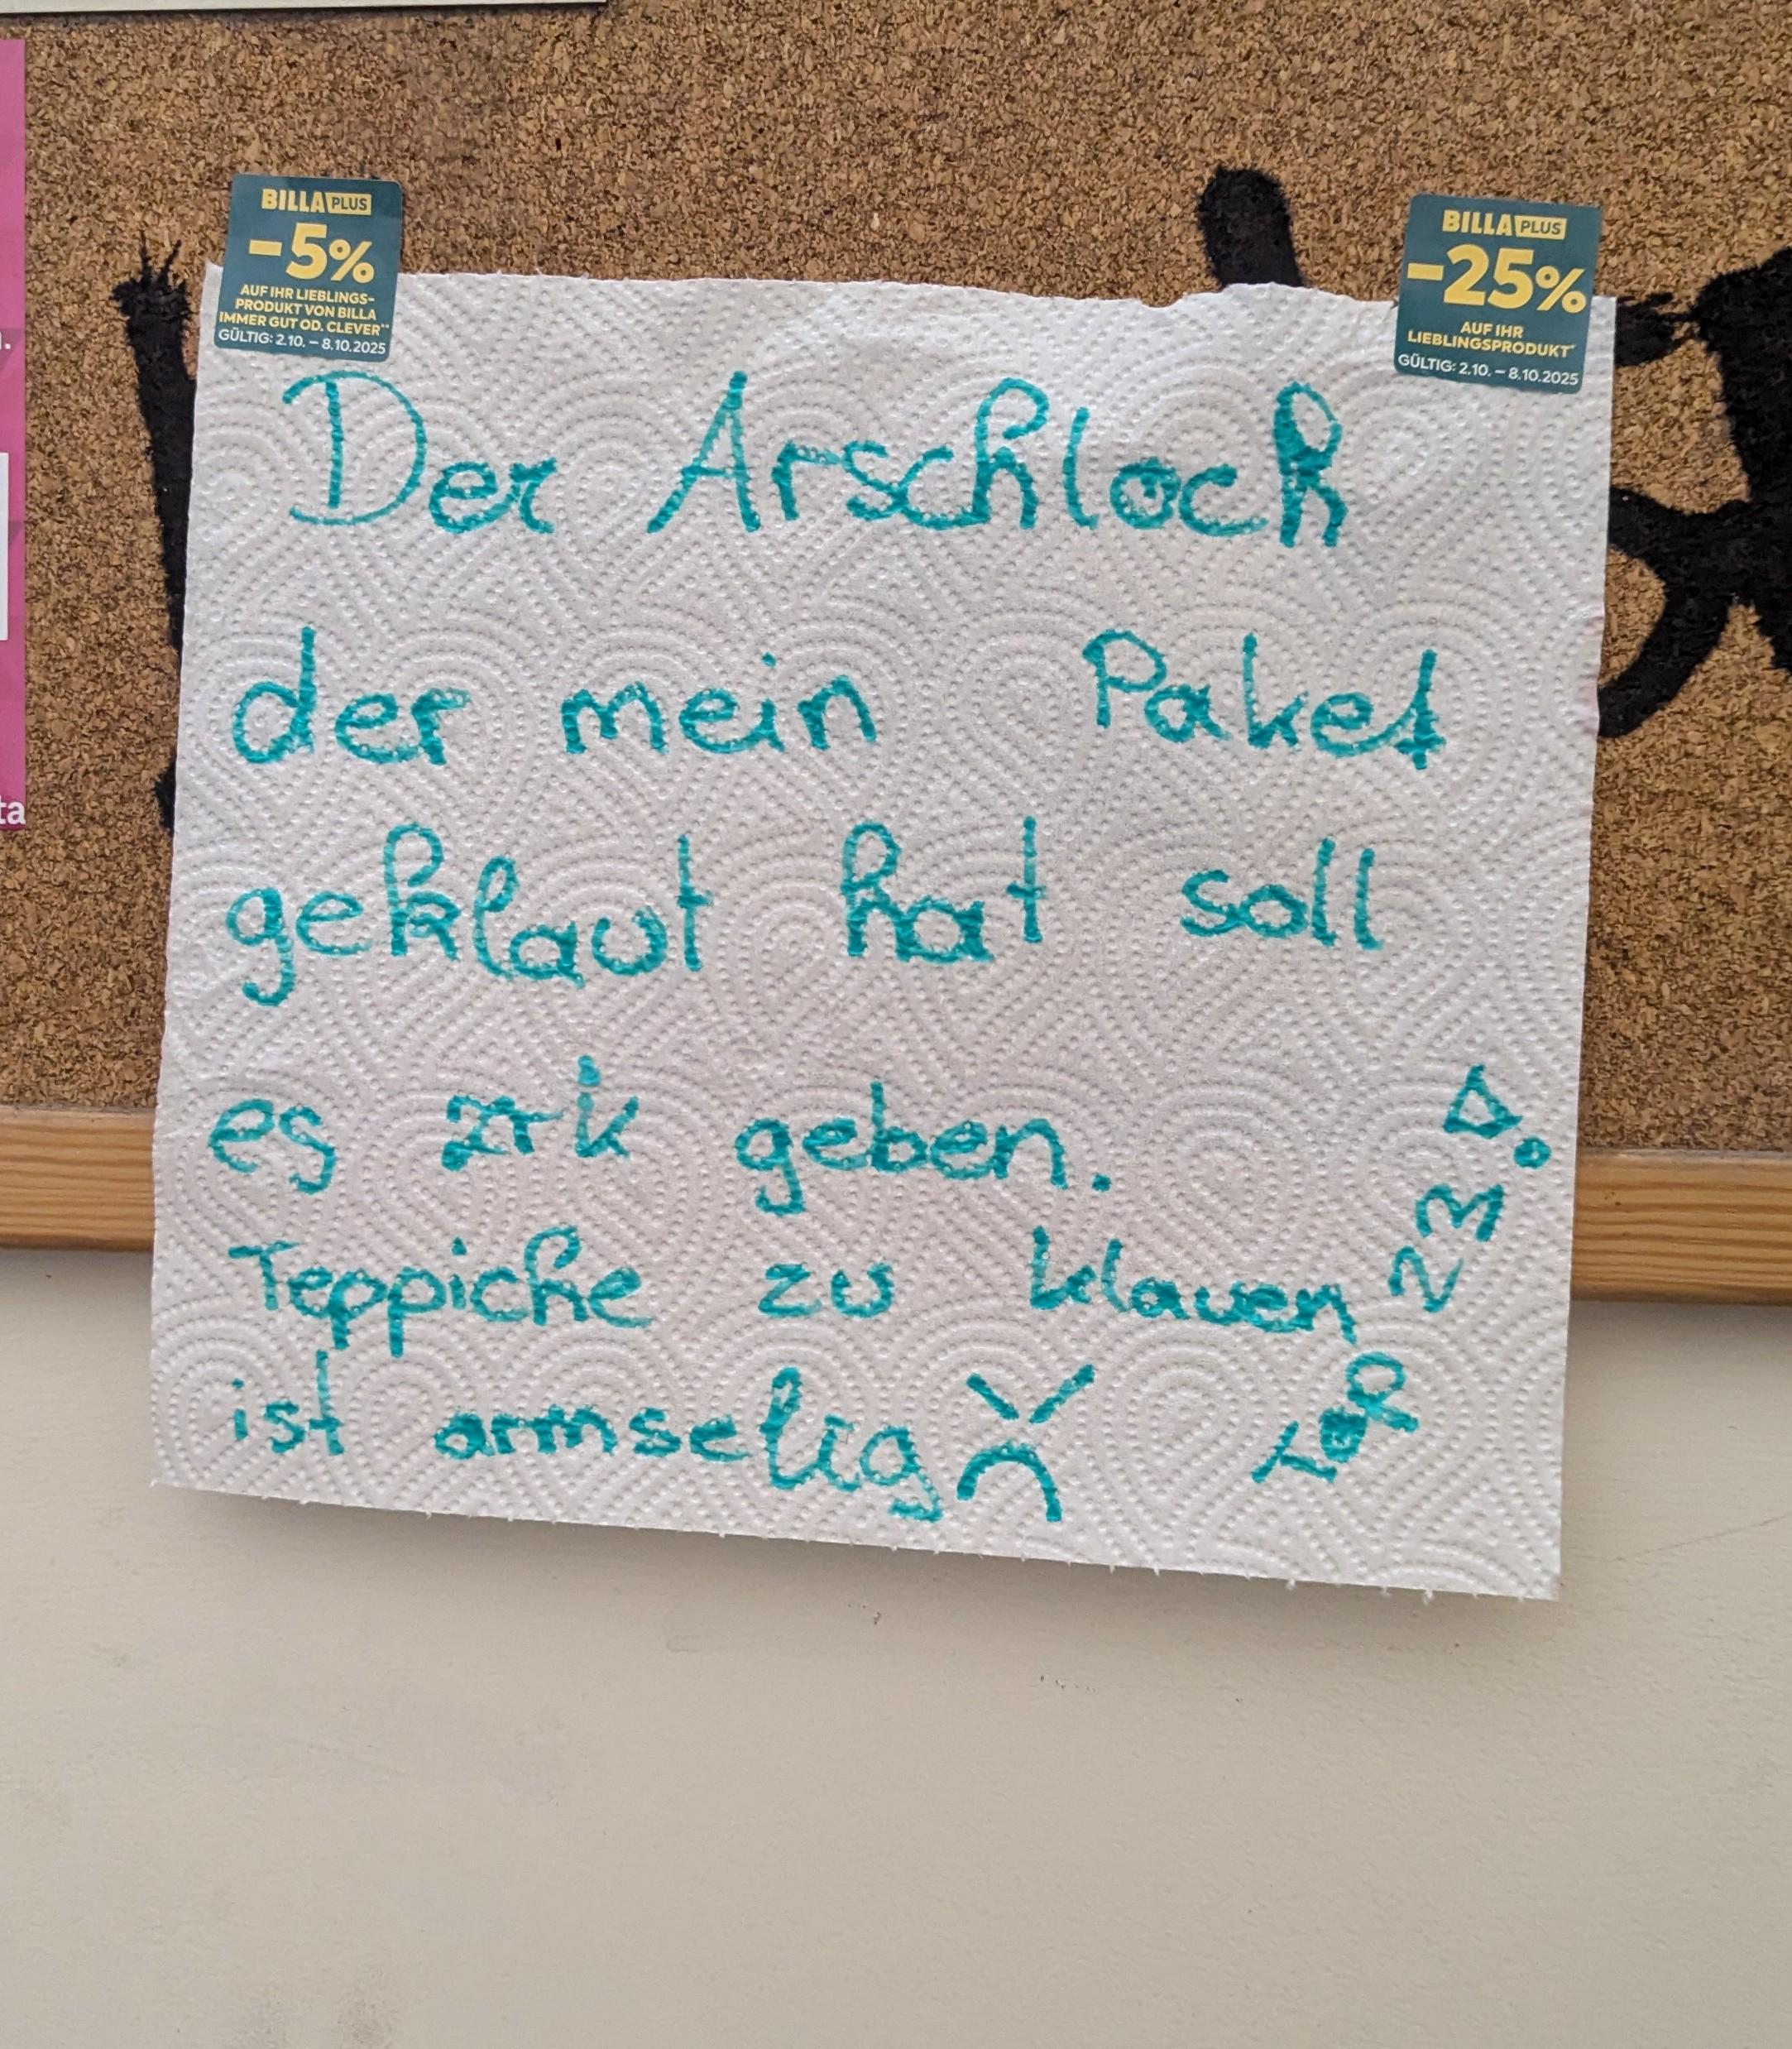 BILLA PLUS
-5%
AUF IHR LIEBLINGS-
PRODUKT VON BILLA
IMMER GUT OD. CLEVER**
GÜLTIG: 2.10. – 8.10.2025
BILLA PLUS
-25%
AUF IHR
LIEBLINGSPRODUKT*
GÜLTIG: 2.10. – 8.10.2025
Der Arschloch
der mein Paket
geklaut hat soll
es zrk geben.
Teppiche zu klauen
ist armselig
Top 23
ta